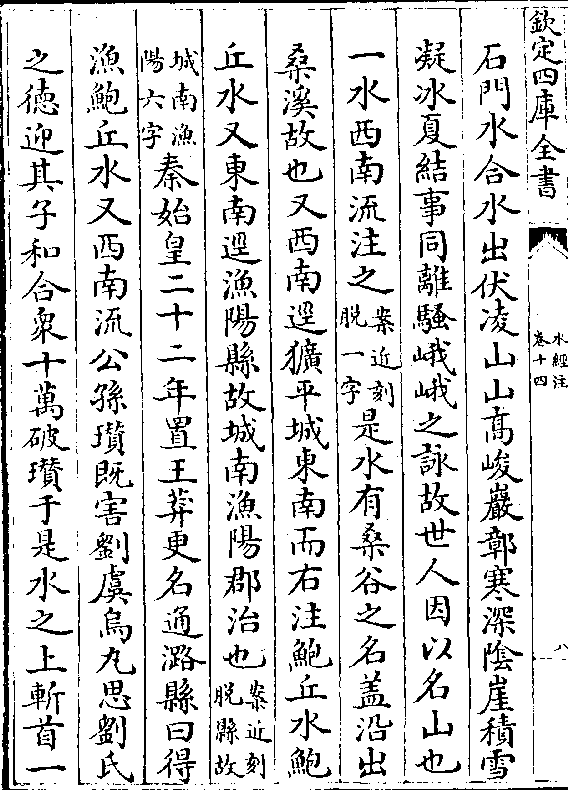 欽定四庫全書
水經注
卷十四
八
石門水合水出伏凌山山髙峻巖鄣寒深隂崖積雪
凝冰夏結事同離騷峨峨之詠故世人因以名山也
一水西南流注之案近刻脱一字是水有桑谷之名盖沿出
桑溪故也又西南逕獷平城東南而右注鮑丘水鮑
丘水又東南逕漁陽縣故城南漁陽郡治也案近刻脱縣故
城南漁陽六字秦始皇二十二年置王莽更名通潞縣曰得
漁鮑丘水又西南流公孫瓚既害劉虞烏丸思劉氏
之徳迎其子和合衆十萬破瓚于是水之上斬首一